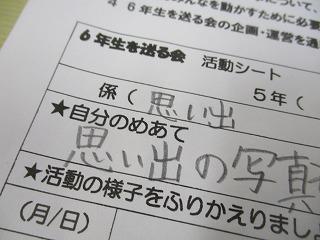 みんなを動かすために必要
4 6年生を送る会の企画・運営を通
6年生を送る会 活動シート
係( 思い出 5年(
★自分のめあて
思い出の写真
★活動の様子をふりかえりましょ
(月/日)